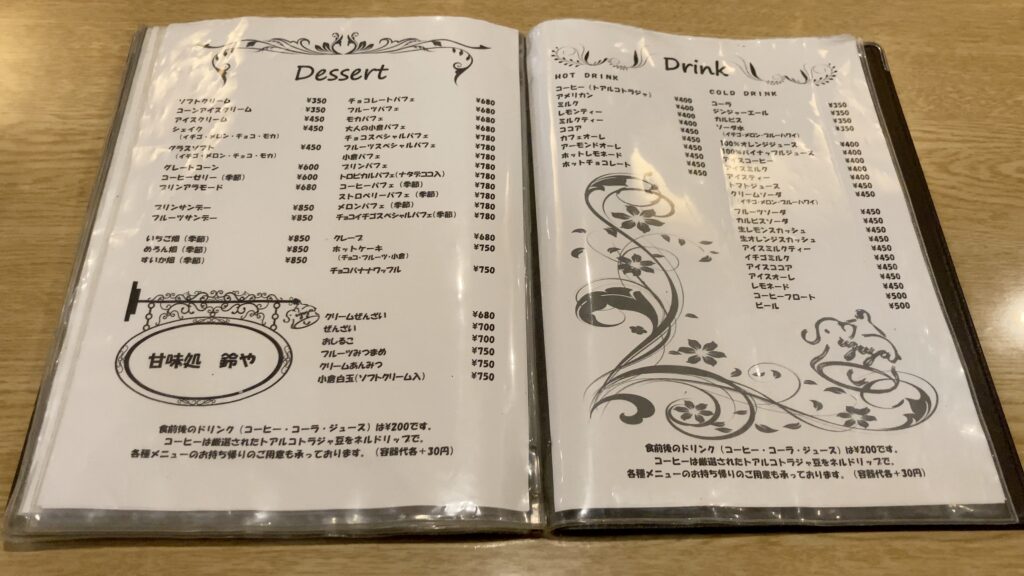 Dessert
ソフトクリーム ¥350
コーンアイスクリーム ¥350
アイスクリーム ¥450
シェイク ¥450
(イチゴ・メロン・チョコ・モカ)
グラスソフト ¥450
(イチゴ・メロン・チョコ・モカ)
グレートコーン ¥600
コーヒーゼリー(季節) ¥600
プリンアラモード ¥680
プリンサンデー ¥850
フルーツサンデー ¥850
いちご畑(季節) ¥850
めろん畑(季節) ¥850
すいか畑(季節) ¥850
チョコレートパフェ ¥680
フルーツパフェ ¥680
モカパフェ ¥680
大人の小倉パフェ ¥680
チョコスペシャルパフェ ¥780
フルーツスペシャルパフェ ¥780
小倉パフェ ¥780
プリンパフェ ¥780
トロピカルパフェ(ナタデココ入) ¥780
コーヒーパフェ(季節) ¥780
ストロベリーパフェ(季節) ¥780
メロンパフェ(季節) ¥780
チョコイチゴスペシャルパフェ(季節) ¥780
クレープ ¥680
ホットケーキ ¥750
(チョコ・フルーツ・小倉)
チョコバナナワッフル ¥750
クリームぜんざい ¥680
ぜんざい ¥700
おしるこ ¥700
フルーツみつまめ ¥750
クリームあんみつ ¥750
小倉白玉(ソフトクリーム入) ¥750
甘味処 鈴や
食前後のドリンク(コーヒー・コーラ・ジュース)は¥200です。
コーヒーは厳選されたトアルコトラジャ豆をネルドリップで。
各種メニューのお持ち帰りのご用意も承っております。(容器代各+30円)
Drink
HOT DRINK
コーヒー(トアルコトラジャ) ¥400
アメリカン ¥400
ミルク ¥400
レモンティー ¥400
ミルクティー ¥450
ココア ¥450
カフェオーレ ¥450
アーモンドオーレ ¥450
ホットレモネード ¥450
ホットチョコレート
COLD DRINK
コーラ ¥350
ジンジャーエール ¥350
カルピス ¥350
ソーダ水
(イチゴ・メロン・ブルーハワイ)
100%オレンジジュース ¥400
100%パイナップルジュース ¥400
アイスコーヒー ¥400
アイスミルク ¥400
アイスティー ¥400
トマトジュース ¥450
クリームソーダ ¥450
(イチゴ・メロン・ブルーハワイ)
フルーツソーダ ¥450
カルピスソーダ ¥450
生レモンスカッシュ ¥450
生オレンジスカッシュ ¥450
アイスミルクティー ¥450
イチゴミルク ¥450
アイスココア ¥450
アイスオーレ ¥450
レモネード ¥450
コーヒーフロート ¥500
ビール ¥500
Suzuya
食前後のドリンク(コーヒー・コーラ・ジュース)は¥200です。
コーヒーは厳選されたトアルコトラジャ豆をネルドリップで。
各種メニューのお持ち帰りのご用意も承っております。(容器代各+30円)